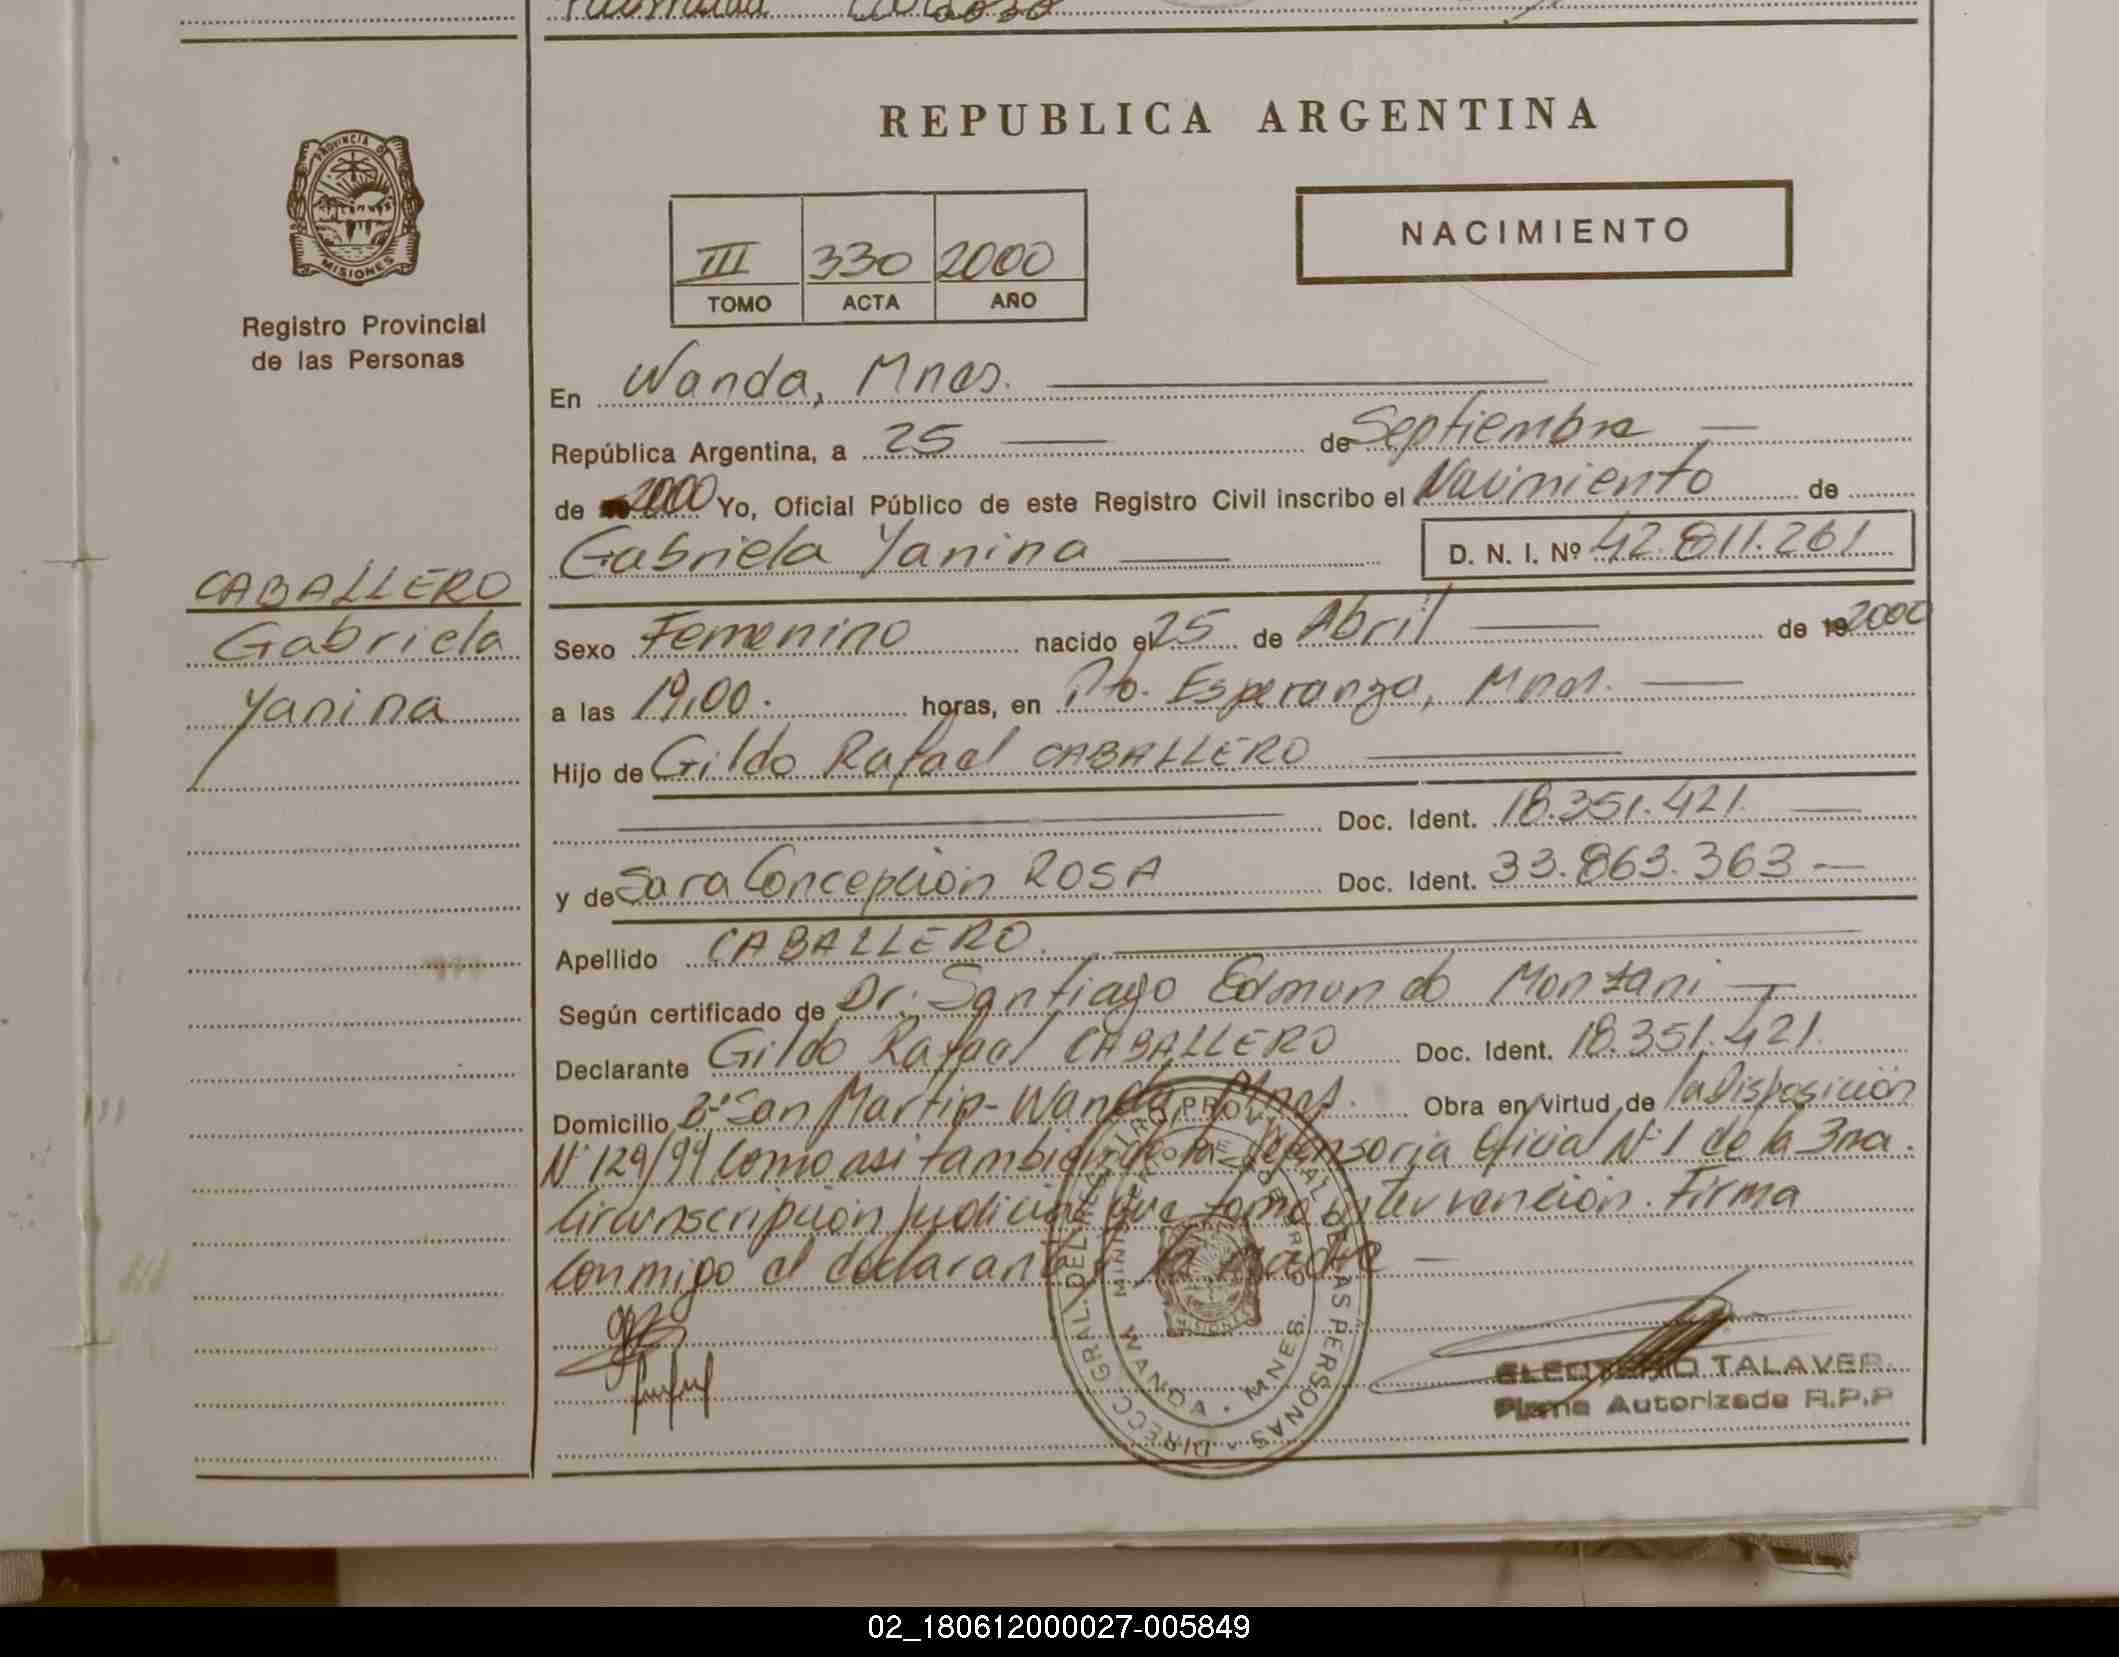 REPUBLICA ARGENTINA
PROVINCIA DE
MISIONES
Registro Provincial
de las Personas
III 330 2000
TOMO ACTA AÑO
NACIMIENTO
En Wanda, Mnes.
República Argentina, a 25 de Septiembre
de 2000 Yo, Oficial Público de este Registro Civil inscribo el Nacimiento de
Gabriela Yanina D. N. I. Nº 42.811.261
CABALLERO
Gabriela
Yanina
Sexo Femenino nacido el 25 de Abril de 19 2000
a las 19,00. horas, en Pto. Esperanza, Mnes.
Hijo de Gildo Rafael CABALLERO
Doc. Ident. 18.351.421.
y de Sara Concepción ROSA Doc. Ident. 33.863.363
Apellido CABALLERO.
Según certificado de Dr. Santiago Edmundo Monzani
Declarante Gildo Rafael CABALLERO Doc. Ident. 18.351.421.
Domicilio Bº San Martin - Wanda, Mnes. Obra en virtud de la Disposición
Nº 129/99 Como asi tambien de la Defensoria Oficial Nº 1 de la 3ra.
Circunscripción Judicial que tomo intervención. Firma
Conmigo el declarante y la madre
DIRECC. GRAL. DEL REGISTRO PROVINCIAL DE LAS PERSONAS
MINISTERIO DE GOBIERNO
MISIONES
WANDA - MNES.
ELEUTERIO TALAVER
Firma Autorizada R.P.P
02_180612000027-005849